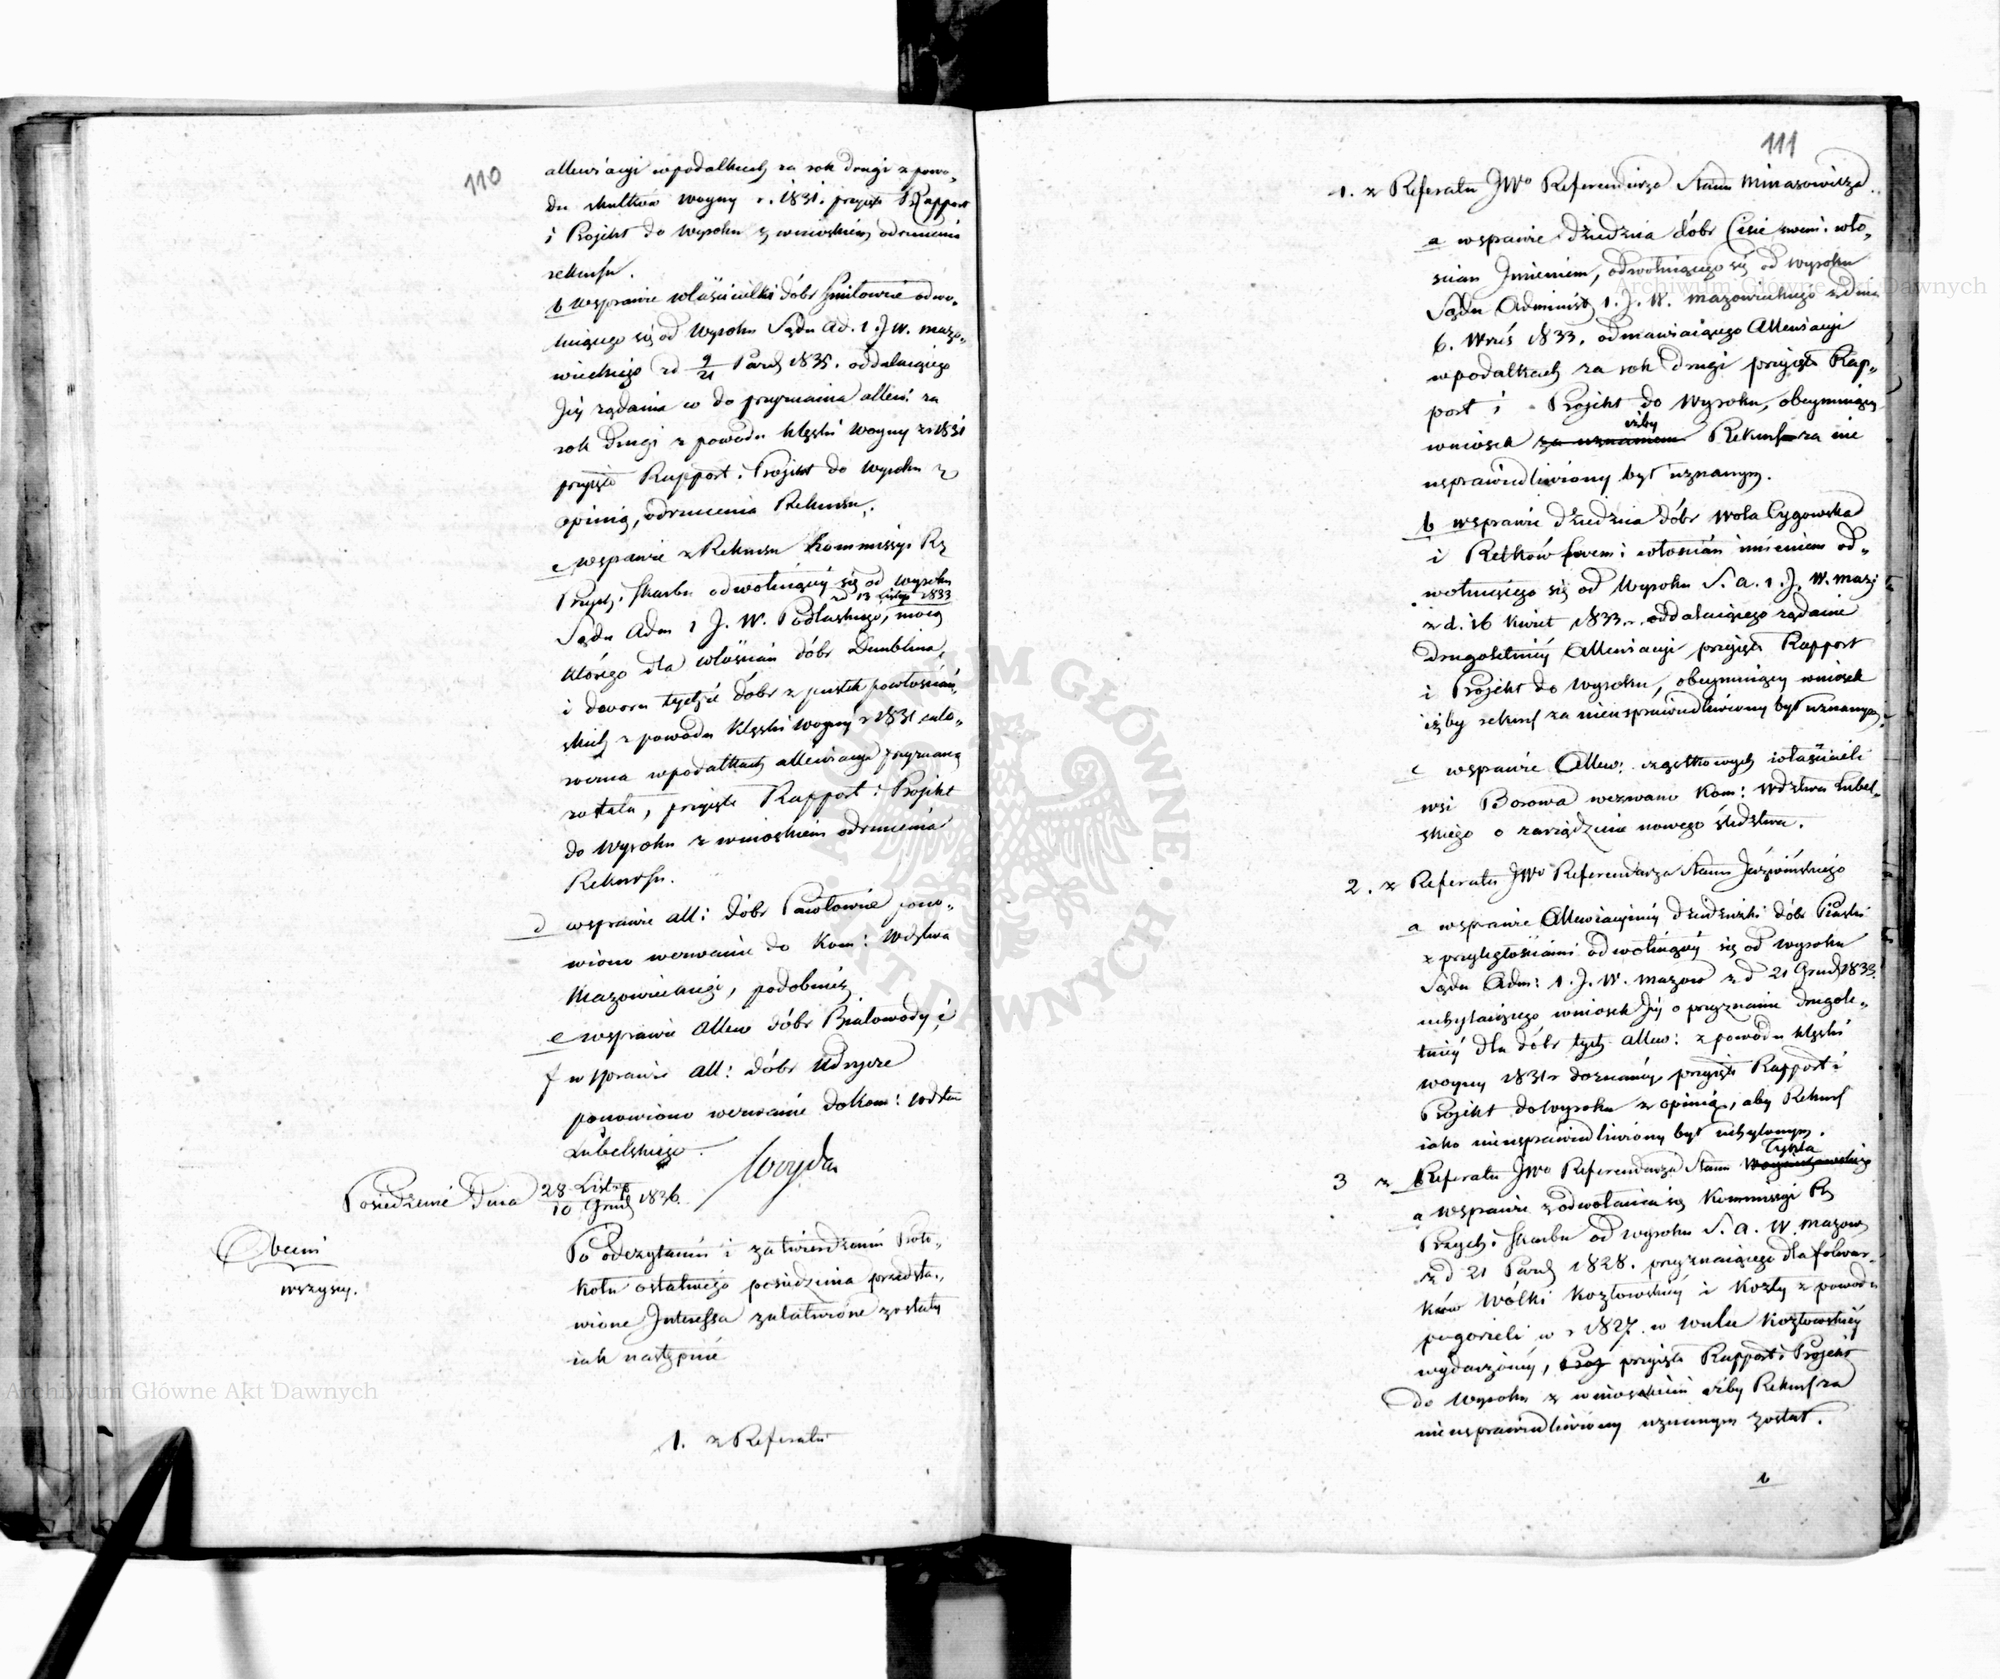 110
allewiacyi w podatkach za rok drugi z powo„
du skutków woyny r. 1831. przyięto Rapport
i Projekt do Wyroku z wnioskiem odrzucenia
rekursu.
b w sprawie właścicielki dóbr Smiłowic odwo„
łuiącego się od Wyroku Sądu Ad. 1 J. W. Mazo„
wieckiego z d 9/21 Paźd 1835. oddalaiącego
Jéy żądania co do przyznania allew: za
rok drugi z powodu klęski woyny z r 1831
przyięto Rapport i Projekt do Wyroku z
opinią, odrzucenia Rekursu.
c w sprawie z Rekursu Kommissyi Rz
Przych: i Skarbu odwołuiącéy się od wyroku
z d 13 Listop 1833
Sądu Adm 1 J. W. Podlaskiego, mocą
którego dla włościan dóbr Demblina,
i dworu tychże dóbr z pustek powłościań„
skich z powodu klęski woyny r 1831 cało„
roczna w podatkach allewiacya przyznaną
została, przyięto Rapport i Projekt
do Wyroku z wnioskiem odrzucenia
Rekursu.
d w sprawie all: dóbr Pawłowic pono„
wiono wezwanie do Kom: Wdztwa
Mazowieckiego, podobnież
e w sprawie Allew dóbr Białowody i
f w sprawie All: dóbr Udrycze
ponowiono wezwanie do Kom: Wdztwa
Lubelskiego.
Woyda
Posiedzenie Dnia 28 Listop/10 Grud 1836.
Obecni
wszyscy.
Po odczytaniu i zatwierdzeniu Proto„
kołu ostatniego posiedzenia przedsta„
wione Interessa załatwione zostały
iak następuie
1. z Referatu
111
1. z Referatu JWo Referendarza Stanu Minasowicza
a w sprawie dziedzica dóbr Cisie swem i wło„
ścian Jmieniem, odwołuiącego się od wyroku
Sądu Administ 1. J. W. Mazowieckiego z dnia
6. Wrześ 1833. odmawiaiącego Allewiacyi
w podatkach za rok drugi przyięto Rap„
port i Projekt do Wyroku, obeymuiący
iżby
wniosek za uznaniem Rekurs za nie
usprawiedliwiony był uznanym.
b w sprawie dziedzica dóbr Wola Cygowska
i Retków swem i włościan imieniem od„
wołuiącego się od Wyroku S. A. 1. J. W. Maz:
z d. 16 Kwiet 1833 r. oddalaiącego żądanie
Drugoletniéy Allewiacyi przyięto Rapport
i Projekt do Wyroku, obeymuiący wniosek
iżby rekurs za nieusprawiedliwiony był uznanym.
c w sprawie Allew: cząstkowych właścicieli
wsi Borowa wezwano Kom: Wdztwa Lubel„
skiego o zarządzenie nowego śledztwa.
2. z Referatu JWo Referendarza Stanu Jasińskiego
a w sprawie Allewiacyinéy dziedziczki dóbr Piaski
z przyległościami odwołuiącéy się od wyroku
Sądu Adm: 1. J. W. Mazow z d 21 Grud 1833.
uchylaiącego wniosek Jéy o przyznanie drugole„
tniéy dla dóbr tych Allew: z powodu klęski
woyny 1831 r doznanéy przyięto Rapport i
Projekt do Wyroku z opinią, aby Rekurs
iako nieusprawiedliwiony był uchylonym.
3 z Referatu JWo Referendarza Stanu
a w sprawie z odwołania się Kommissyi Rz
Przych: i Skarbu od wyroku S. A. W. Mazow
z d 21 Paźd 1828. przyznaiącego dla folwar„
ków Wólki Kozłowskiéy i Kozły z powodu
pogorzeli w r 1827. w Wulce Kozłowskiéy
wydarzonéy, przyięto Rapport i Projekt
do Wyroku z wnioskiem iżby Rekurs za
nieusprawiedliwiony uznanym został.
b
Archiwum Główne Akt Dawnych
Archiwum Główne Akt Dawnych
ARCHIWUM GŁÓWNE AKT DAWNYCH